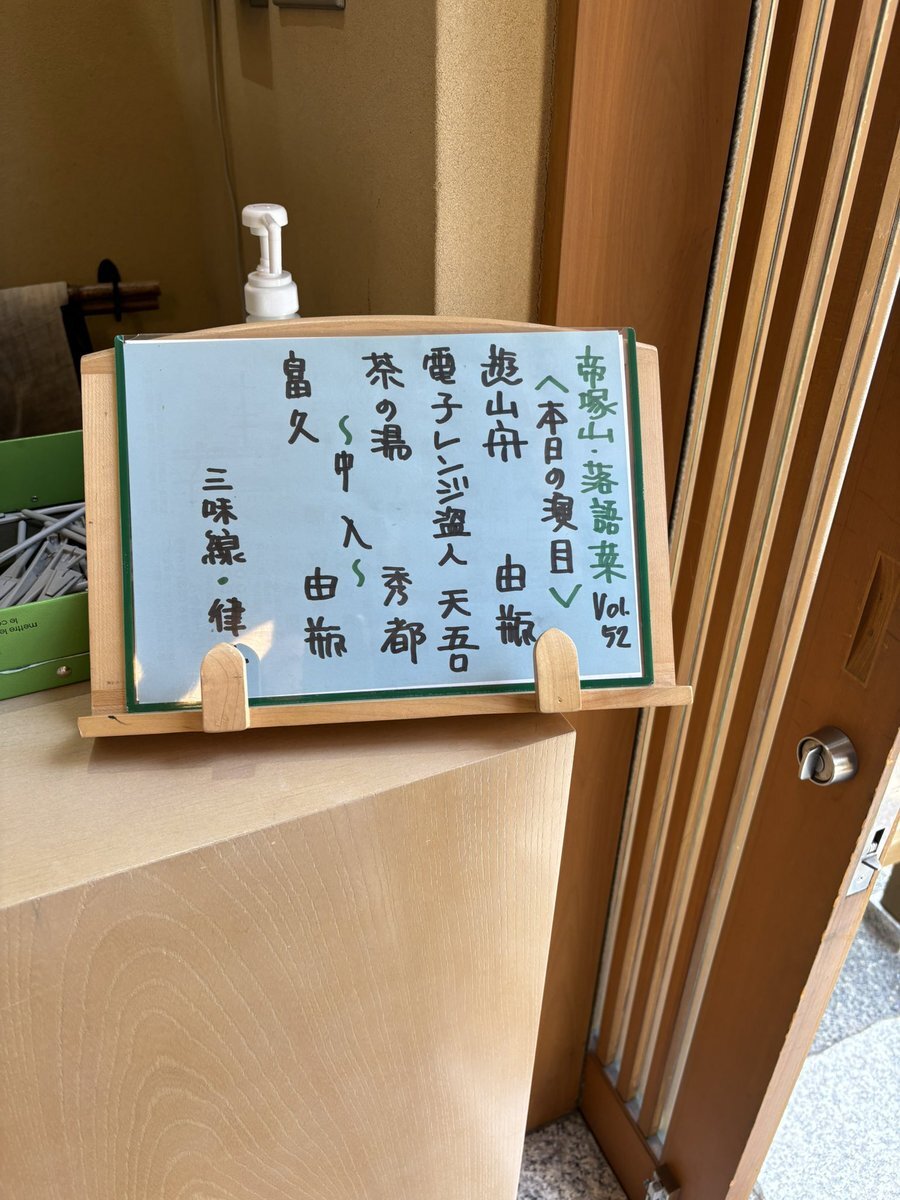 帝塚山・落語菜 Vol. 52
〈本日の演目〉
遊山舟 由瓶
電子レンジ盗人 天吾
茶の湯 秀都
〜中入〜
富久 由瓶
三味線・律
mettre le